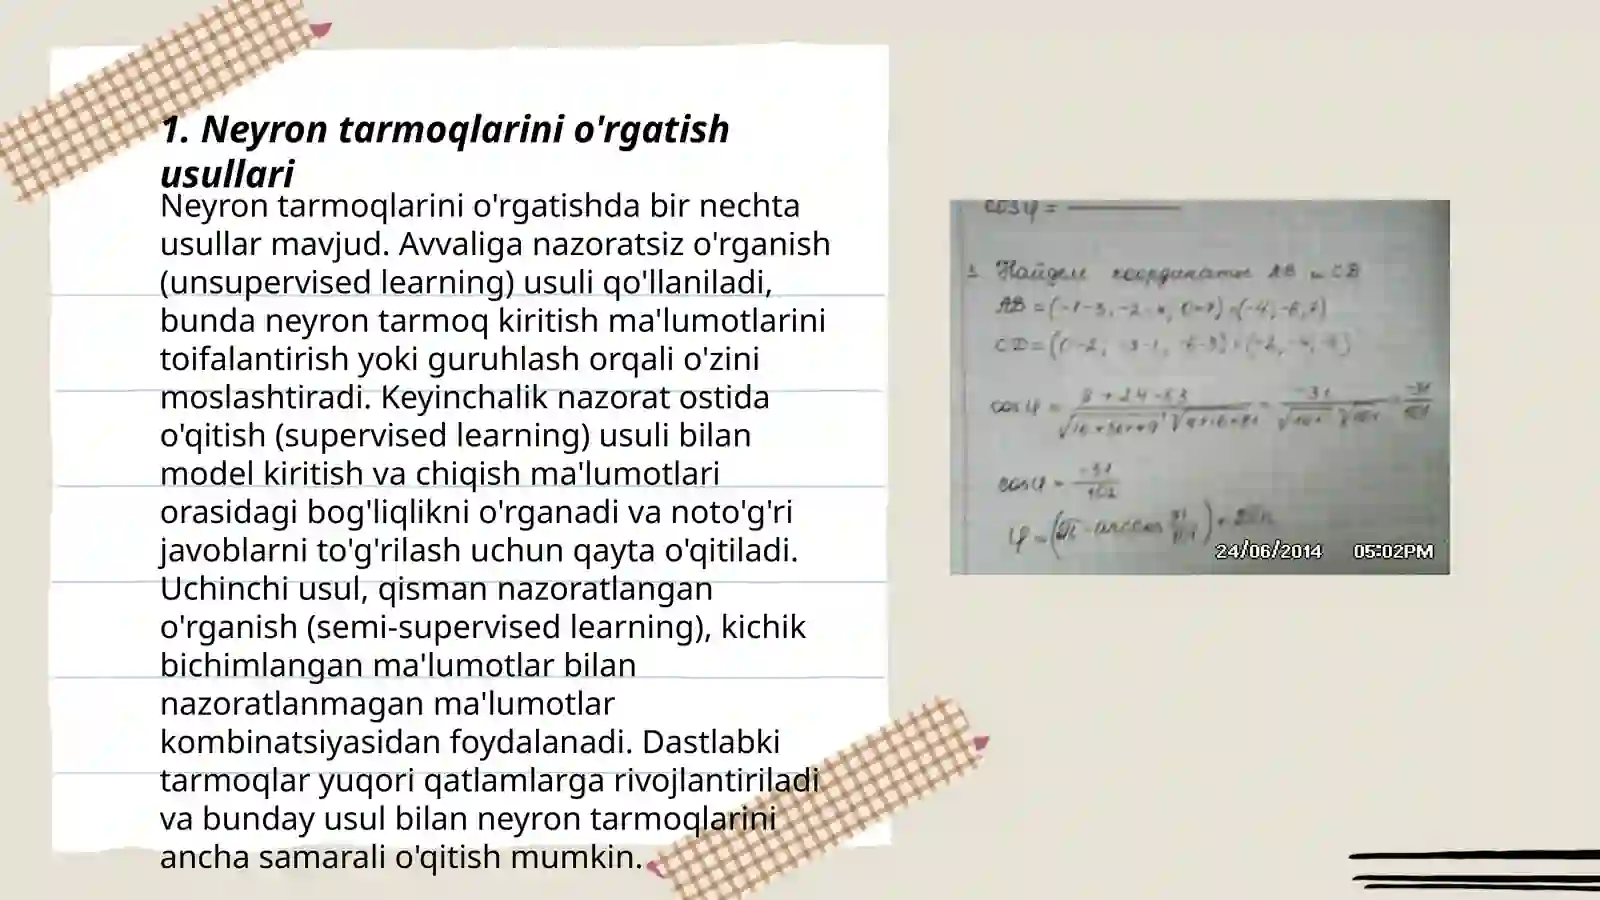 1. Neyron tarmoqlarini o'rgatish
usullari
Neyron tarmoqlarini o'rgatishda bir nechta
usullar mavjud. Avvaliga nazoratsiz o'rganish
(unsupervised learning) usuli qo'llaniladi,
bunda neyron tarmoq kiritish ma'lumotlarini
toifalantirish yoki guruhlash orqali o'zini
moslashtiradi. Keyinchalik nazorat ostida
o'qitish (supervised learning) usuli bilan
model kiritish va chiqish ma'lumotlari
orasidagi bog'liqlikni o'rganadi va noto'g'ri
javoblarni to'g'rilash uchun qayta o'qitiladi.
Uchinchi usul, qisman nazoratlangan
o'rganish (semi-supervised learning), kichik
bichimlangan ma'lumotlar bilan
nazoratlanmagan ma'lumotlar
kombinatsiyasidan foydalanadi. Dastlabki
tarmoqlar yuqori qatlamlarga rivojlantiriladi
va bunday usul bilan neyron tarmoqlarini
ancha samarali o'qitish mumkin.
cos φ =
Найдем координаты AB и CD
AB =
CD =
cos φ =
cos φ =
φ =
24/06/2014 05:02PM